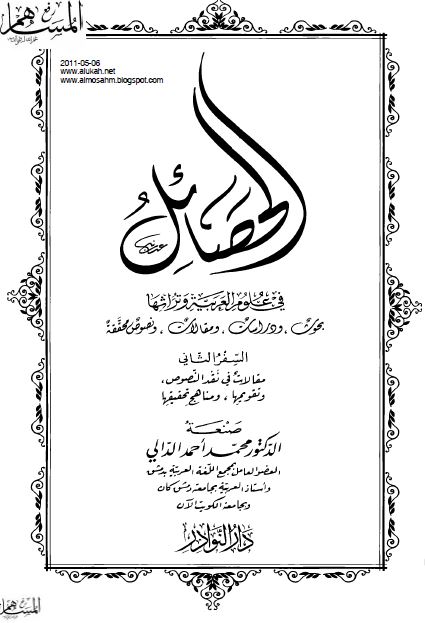 رفع
المساهم
2011-05-06
www.alukah.net
www.almosahm.blogspot.com
الحصائل
في علوم العربية وتراثها
بحوث ، ودراسات ، ومقالات ، ونصوص محققة
السفر الثاني
مقالات في نقد النصوص،
وتقويمها ، ومناهج تحقيقها
صنعة
الدكتور محمد أحمد الدالي
العضو العامل بمجمع اللغة العربية بدمشق
وأستاذ العربية بجامعة دمشق كان
وبجامعة الكويت الآن
دار النوادر
المساهم